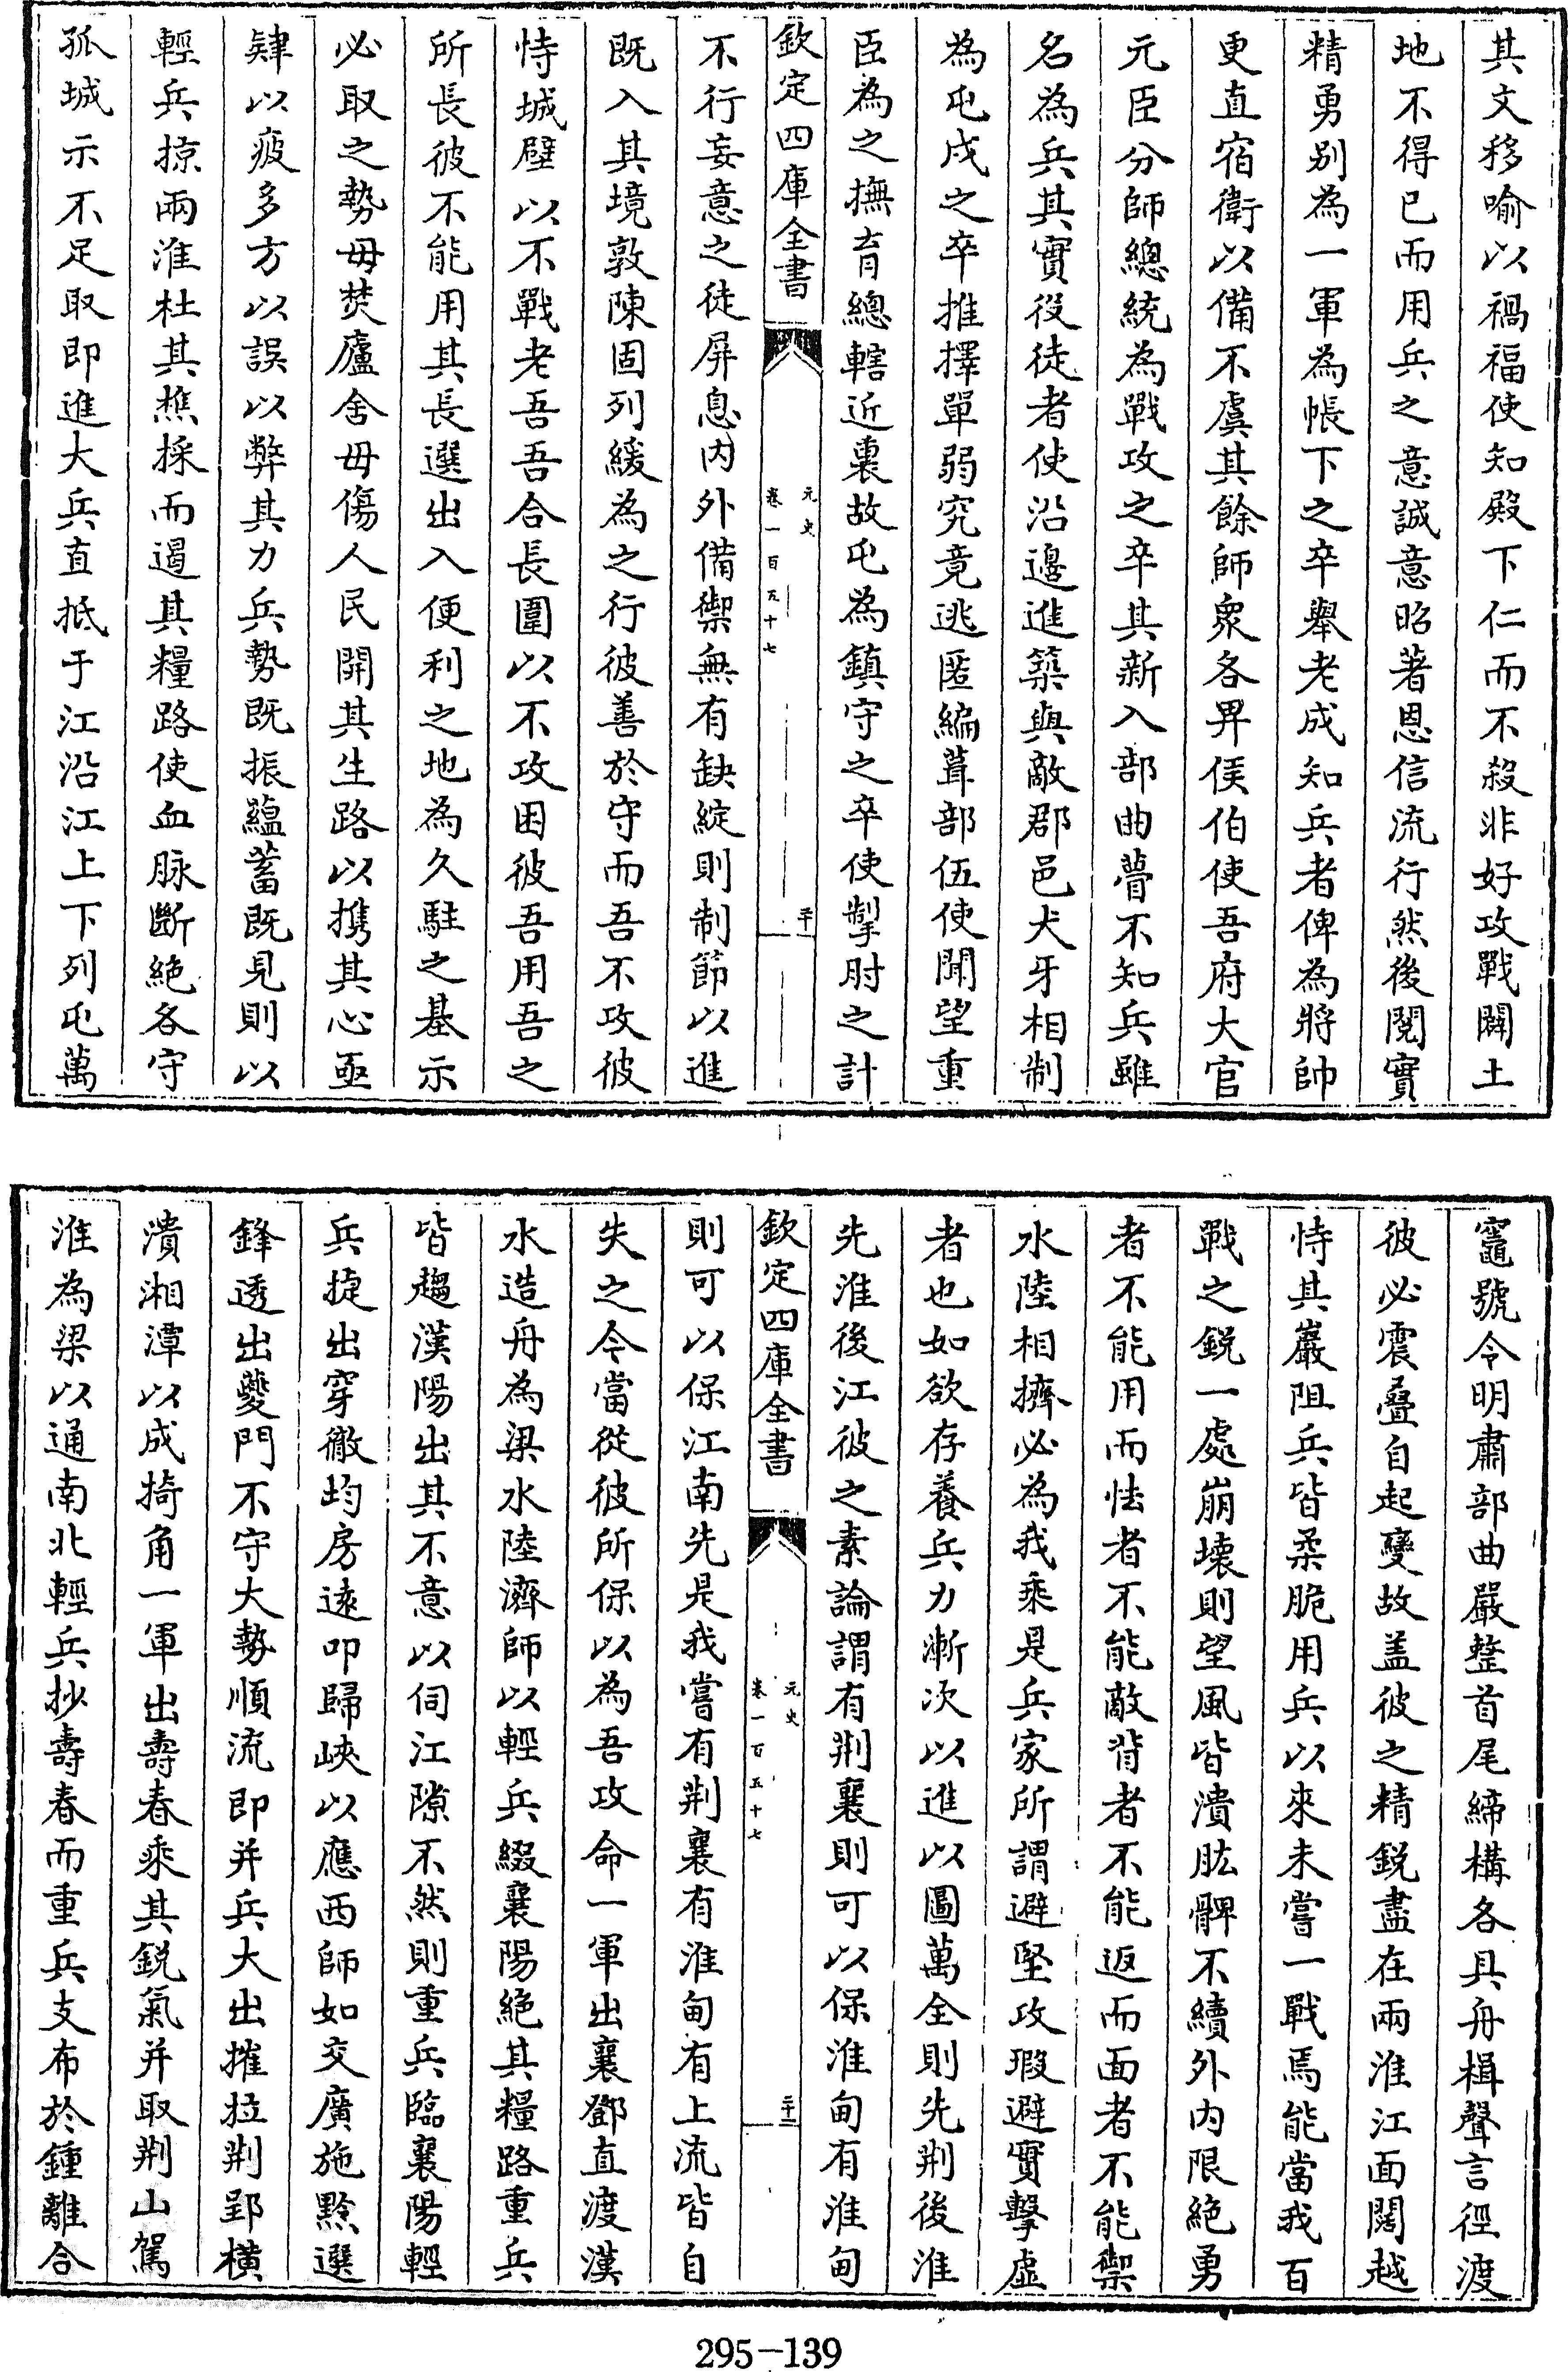 其文移喻以禍福使知殿下仁而不殺非好攻戰闢土
地不得已而用兵之意誠意昭著恩信流行然後閱實
精勇别為一軍為帳下之卒舉老成知兵者俾為將帥
更直宿衛以備不虞其餘師衆各畀侯伯使吾府大官
元臣分師總統為戰攻之卒其新入部曲瞢不知兵雖
名為兵其實役徒者使沿邊進築與敵郡邑犬牙相制
為屯戍之卒推擇單弱究竟逃匿編葺部伍使聞望重
臣為之撫育總轄近裏故屯為鎮守之卒使掣肘之計
欽定四庫全書
元史
卷一百五十七
三十
不行妄意之徒屏息内外備禦無有缺綻則制節以進
既入其境敦陳固列緩為之行彼善於守而吾不攻彼
恃城壁以不戰老吾吾合長圍以不攻困彼吾用吾之
所長彼不能用其長選出入便利之地為久駐之基示
必取之勢毋焚廬舍毋傷人民開其生路以攜其心亟
肄以疲多方以誤以弊其力兵勢既振蘊蓄既見則以
輕兵掠兩淮杜其樵採而遏其糧路使血脉斷絶各守
孤城示不足取即進大兵直抵于江沿江上下列屯萬
竈號令明肅部曲嚴整首尾締構各具舟楫聲言徑渡
彼必震疊自起變故盖彼之精鋭盡在兩淮江面闊越
恃其巖阻兵皆柔脆用兵以來未嘗一戰焉能當我百
戰之鋭一處崩壞則望風皆潰肱髀不續外内限絶勇
者不能用而怯者不能敵背者不能返而面者不能禦
水陸相擠必為我乘是兵家所謂避堅攻瑕避實擊虚
者也如欲存養兵力漸次以進以圖萬全則先荆後淮
先淮後江彼之素論謂有荆襄則可以保淮甸有淮甸
欽定四庫全書
元史
卷一百五十七
三十一
則可以保江南先是我嘗有荆襄有淮甸有上流皆自
失之今當從彼所保以為吾攻命一軍出襄鄧直渡漢
水造舟為梁水陸濟師以輕兵綴襄陽絶其糧路重兵
皆趨漢陽出其不意以伺江隙不然則重兵臨襄陽輕
兵捷出穿徹均房遠叩歸峽以應西師如交廣施黔選
鋒透出夔門不守大勢順流即并兵大出摧拉荆郢横
潰湘潭以成掎角一軍出壽春乘其鋭氣并取荆山駕
淮為梁以通南北輕兵抄壽春而重兵支布於鍾離合
295-139